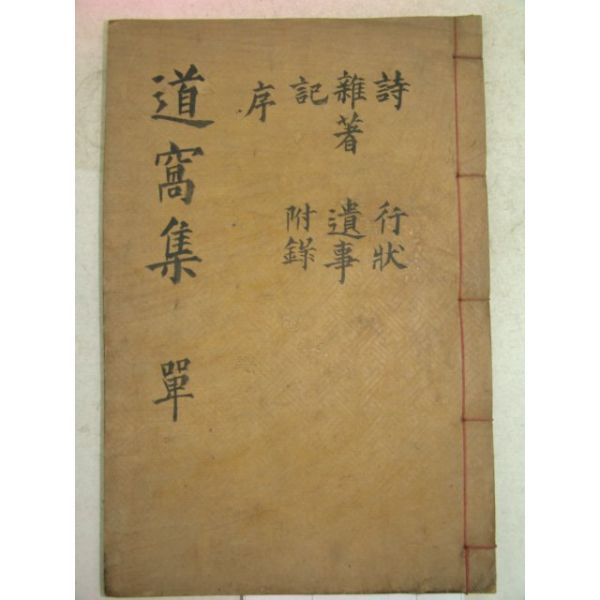 詩 行狀
雜著 遺事
記 附錄
序
道窩集 單